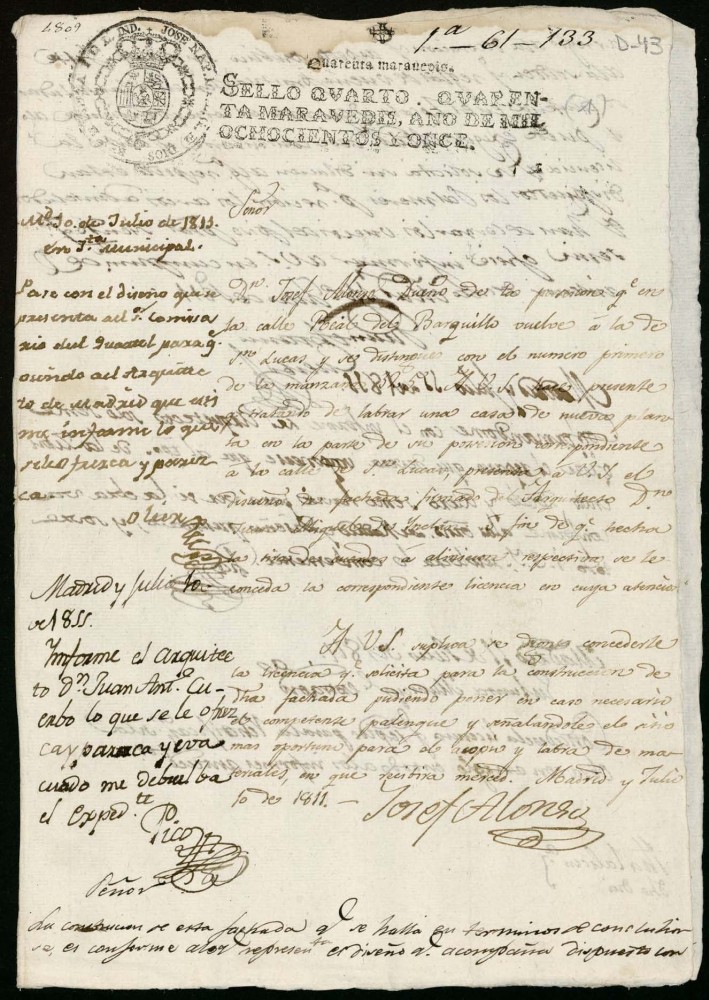 1809
1ª - 61 - 133
D-43
Quarenta maravedis.
SELLO QVARTO. QVAREN-
TA MARAVEDIS, ANO DE MIL
OCHOCIENTOS Y ONCE.
Señor
Md. 10. de Julio de 1811.
en Jta. Municipal.
Pase con el diseño que se
presenta al Sr. Comisa
rio del Quartel para q.
oiendo al Arquitec
to de Madrid
me informe lo que
se le ofrezca y parez
ca
Dn. Josef Alonso Dueño de la posesion qe. en
la calle Real del Barquillo vuelve à la de
Sn. Lucas, y se distingue con el numero primero
de la manzana à V.S. hace presente
q. tratando de labrar una casa de nueva plan
ta en la parte de su posesion correspondiente
à la calle de S. Lucas, presenta à V.S. el
de fachada firmado del Arquitecto Dn.
à fin de q. hecha
la respectiva se le
conceda la correspondiente licencia en cuya atencion
Madrid y Julio 10
de 1811.
Informe el arquitec
to Dn. Juan Antº. Cu-
erbo lo que se le ofrez
ca y parezca y eva
cuado me debuelba
el Exped.te
Pico
A V.S. suplica se digne concederle
la licencia qe. solicita para la construccion de
dha fachada pudiendo poner en caso necesario
el competente palenque y señalandole el sitio
mas oportuno para el acopio y labra de ma
teriales, en que recibirá merced. Madrid y Julio
10 de 1811. -
Josef Alonso
Señor
La construccion de esta fachada q. se halla en terminos de concluir
se, es conforme al q. represen.ta el diseño q. acompaña dispuesto con